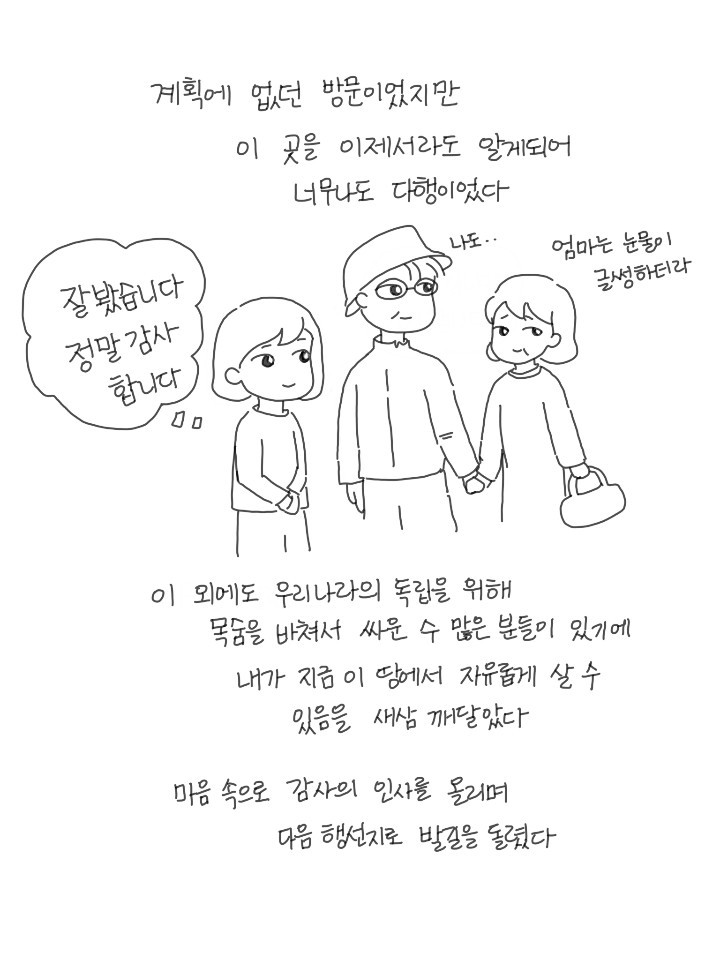 계획에 없던 방문이었지만
이 곳을 이제서라도 알게되어
너무나도 다행이었다
나도..
엄마는 눈물이
글썽하더라
잘 봤습니다
정말 감사
합니다
이 외에도 우리나라의 독립을 위해
목숨을 바쳐서 싸운 수 많은 분들이 있기에
내가 지금 이 땅에서 자유롭게 살 수
있음을 새삼 깨달았다
마음 속으로 감사의 인사를 올리며
다음 행선지로 발길을 돌렸다